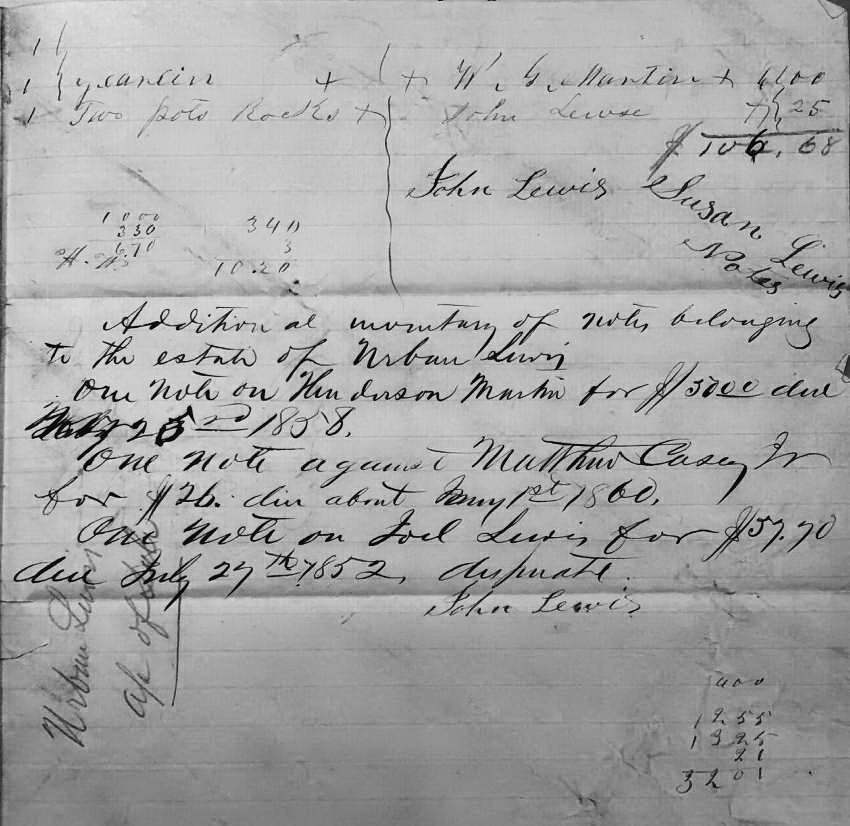 1 {
1 { yearlin + + W. G. Martin + 6100
1 Two pots Racks + John Lewse + } 25
$ 106.68
John Lewis Susan Lewis
Notes
1000
330
6.70
H. H.
340
3
1020
Additional inventary of notes belonging
to the estate of Urban Lewis
One note on Henderson Martin for $50 00 due
25 nd 1858.
One note against Matthew Casey Jr
for $26. due about Jany 1st 1860.
One note on Joel Lewis for $57.70
due July 27th 1852, desperate.
John Lewis
Urban Lewis
400
1255
1325
21
3201